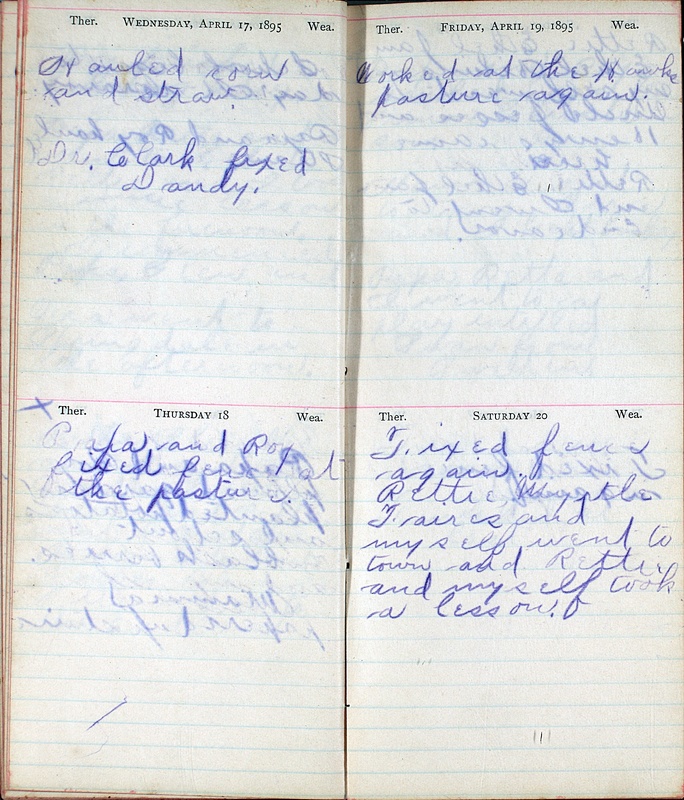 Ther. WEDNESDAY, APRIL 17, 1895 Wea.
Hauled corn
and straw.
Dr. Clark fixed
Dandy.
Ther. THURSDAY 18 Wea.
Papa and Roy
fixed fence at
the pasture.
Ther. FRIDAY, APRIL 19, 1895 Wea.
Worked at the Hawks
pasture again.
Ther. SATURDAY 20 Wea.
Fixed fence
again.
Rettie Myrtle
Faires and
myself went to
town and Rettie
and myself took
a lesson.